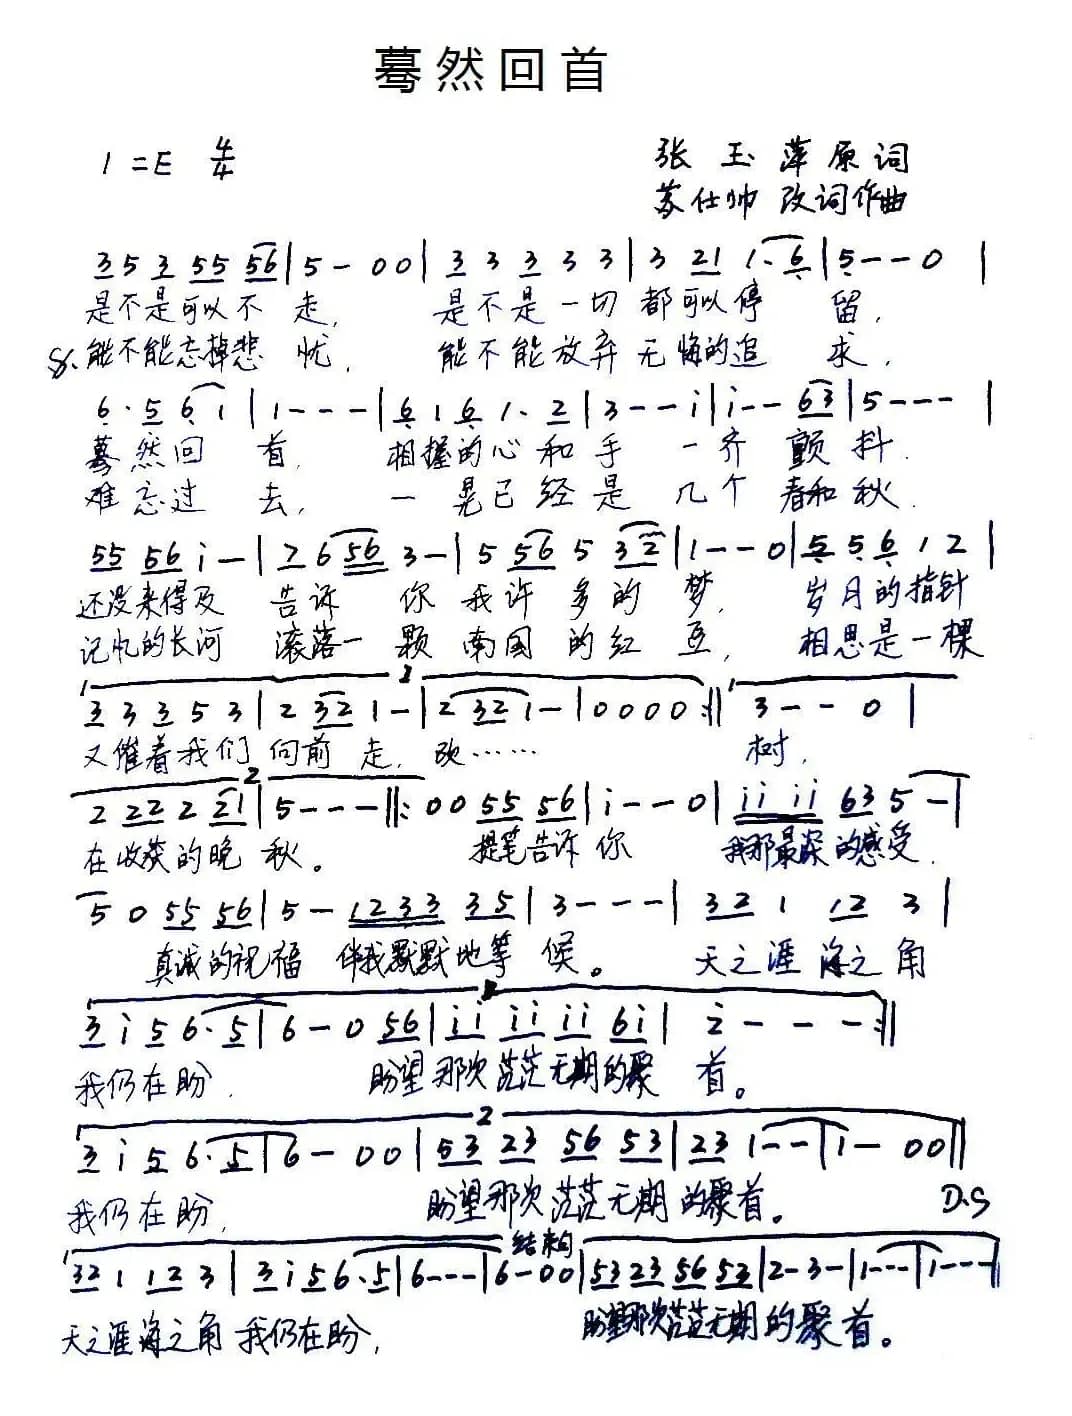 蓦然回首
1=E 4/4
张玉萍原词
苏仕帅 改词作曲
3 5 3 55 56 | 5 - 0 0 | 3 3 3 3 3 | 3 21 1. 6 | 5 - - 0 |
是不是可以不 走, 是不是一切都可以停 留,
能不能忘掉悲 忧, 能不能放弃无悔的追 求,
6. 5 6 1 | 1 - - - | 6 1 6 1. 2 | 3 - - i | i - - 63 | 5 - - - |
蓦然回 首, 相握的心和手 一齐颤抖.
难忘过 去, 一晃已经是 几个春和秋.
55 56 i - | 7 6 56 3 - | 5 56 5 32 | 1 - - 0 | 5 5 6 1 2 |
还没来得及 告诉 你 我许多的梦, 岁月的指针
记忆的长河 滚落一颗南国的红豆, 相思是一棵
1 1
3 3 3 5 3 | 2 32 1 - | 2 32 1 - | 0 0 0 0 :|| 3 - - 0 |
又催着我们 向前走, 改…… 树,
2
2 22 2 21 | 5 - - - ||: 0 0 55 56 | i - - 0 | ii ii 63 5 - |
在收获的晚 秋。 提笔告诉你 我那最深的感受.
5 0 55 56 | 5 - 1233 35 | 3 - - - | 32 1 12 3 |
真诚的祝福 伴我默默地等 候。 天之涯海之角
3 i 5 6. 5 | 6 - 0 56 | ii ii ii 6i | i - - - :||
我仍在盼. 盼望那次茫茫无期的聚 首。
2
3 i 5 6. 5 | 6 - 0 0 | 53 23 56 53 | 23 1 - - | 1 - 0 0 ||
我仍在盼, 盼望那次茫茫无期的聚首。 D.S
结束句
32 1 12 3 | 3 i 5 6. 5 | 6 - - - | 6 - 0 0 | 53 23 56 53 | 2 - 3 - | 1 - - - | 1 - - - ||
天之涯海之角我仍在盼, 盼望那次茫茫无期的聚首。